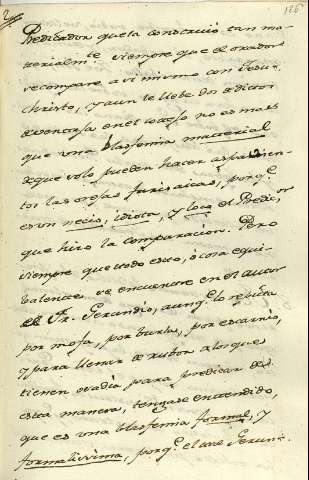 126
Predicador que la construió tan ma-
terialm.te siempre que el orador
se compare a si mismo con Jesu-
Christo, y aun se llebe dos deditos
de ventaja en el cotejo no es mas
que una blasfemia material
de que solo pueden hacer aspavien-
tos las orejas farisaicas, porq.e
es un necio, idiota, y loco el Predic.or
que hizo la comparacion. Pero
siempre que todo esto, ó cosa equi-
balente se encuentre en el autor
de Fr. Gerundio, aunq.e lo repita
por mofa, por burla, por escarnio,
y para llenar de rubor a los que
tienen osadia para predicar de
esta manera, tengase entendido,
que es una blasfemia formal, y
formalissima, porq.e el une Gerun-